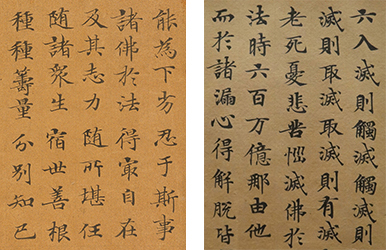 六入滅則觸滅觸滅則
滅則取滅取滅則有滅
老死憂悲苦惱滅佛於
法時六百万億那由他
而於諸漏心得解脫皆
能為下劣忍于斯事
諸佛於法得冣自在
及其志力随所堪任
随諸衆生宿世善根
種種籌量分別知已